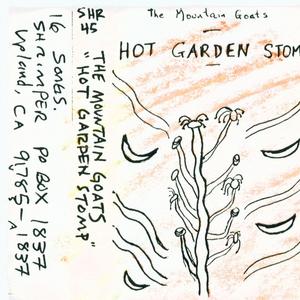 16 SONGS.
SHRIMPER PO BOX 1837
Upland, CA 91785-1837
SHR
45
THE MOUNTAIN GOATS
"HOT GARDEN STOMP"
The Mountain Goats
HOT GARDEN STOM